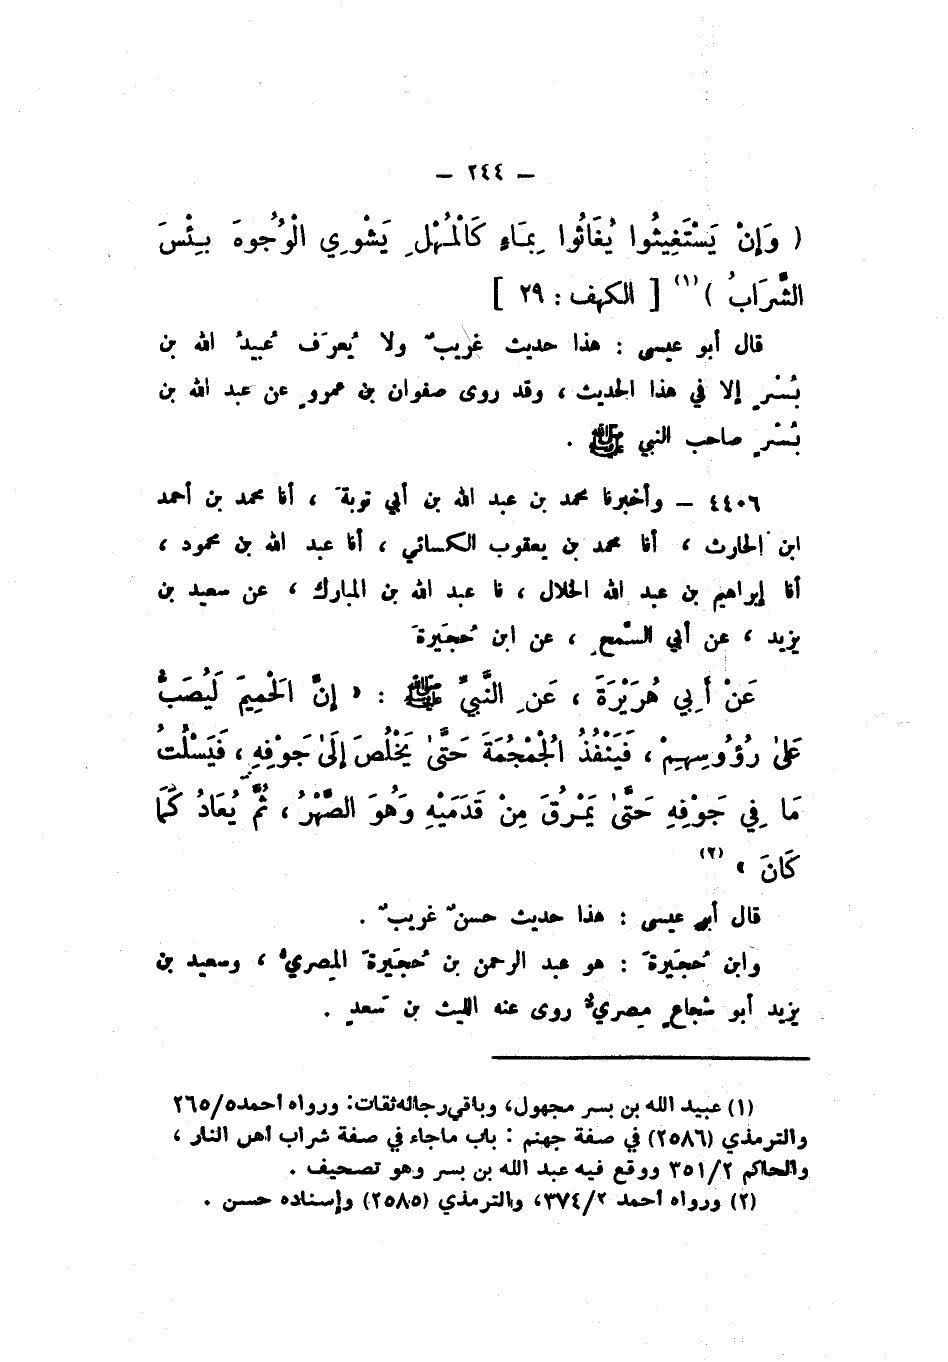 — ٢٤٤ —
( وَإِنْ يَسْتَغِيثُوا يُغَاثُوا بِمَاءٍ كَالْمُهْلِ يَشْوِي الْوُجُوهَ بِئْسَ
الشَّرَابُ ) (١) [ الكهف : ٢٩ ]
قال أبو عيسى : هذا حديث غريبٌ ولا يُعرَف عُبيدُ الله بن
بُسْرٍ إلا في هذا الحديث ، وقد روى صفوان بن عمروٍ عن عبد الله بن
بُسْرٍ صاحب النبي ﷺ .
٤٤٠٦ — وأخبرنا محمد بن عبد الله بن أبي توبةَ ، أنا محمد بن أحمد
ابن الحارث ، أنا محمد بن يعقوب الكسائي ، أنا عبد الله بن محمود ،
أنا إبراهيم بن عبد الله الخلال ، نا عبد الله بن المبارك ، عن سعيد بن
يزيد ، عن أبي السَّمحِ ، عن ابن حُجَيرةَ
عَنْ أَبِي هُرَيْرَةَ ، عَنِ النَّبِيِّ ﷺ : « إِنَّ الْحَمِيمَ لَيُصَبُّ
عَلَى رُؤُوسِهِمْ ، فَيَنْفُذُ الْجُمْجُمَةَ حَتَّى يَخْلُصَ إِلَى جَوْفِهِ ، فَيَسْلُتُ
مَا فِي جَوْفِهِ حَتَّى يَمْرُقَ مِنْ قَدَمَيْهِ وَهُوَ الصَّهْرُ ، ثُمَّ يُعَادُ كَمَا
كَانَ » (٢)
قال أبو عيسى : هذا حديث حسنٌ غريبٌ .
وابن حُجَيرةَ : هو عبد الرحمن بن حُجَيرةَ المصريُّ ، وسعيد بن
يزيد أبو شجاعٍ مِصريٌّ روى عنه الليث بن سَعدٍ .
(١) عبيد الله بن بسر مجهول، وباقي رجاله ثقات: ورواه أحمد ٢٦٥/٥
والترمذي (٢٥٨٦) في صفة جهنم : باب ماجاء في صفة شراب أهل النار ،
والحاكم ٣٥١/٢ ووقع فيه عبد الله بن بسر وهو تصحيف .
(٢) ورواه أحمد ٣٧٤/٢، والترمذي (٢٥٨٥) وإسناده حسن .